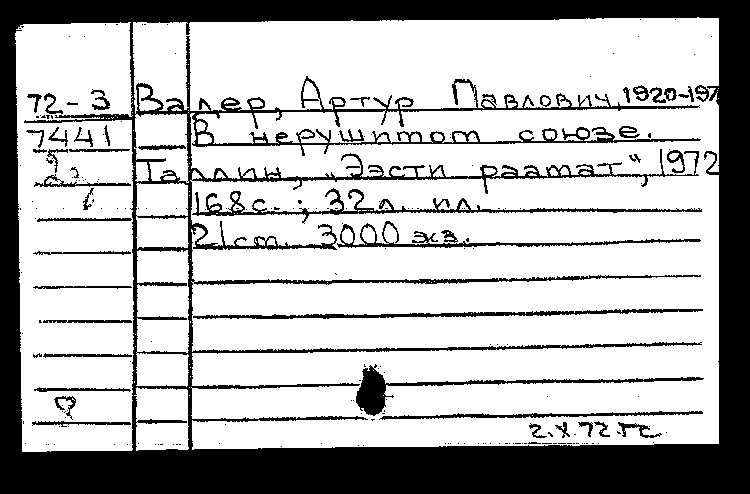 72-3 Валер, Артур Павлович, 1920-197
7441 В нерушимом союзе.
Таллин, „Ээсти раамат“, 1972
168с.; 32л. ил.
21см. 3000 экз.
2.X.72.